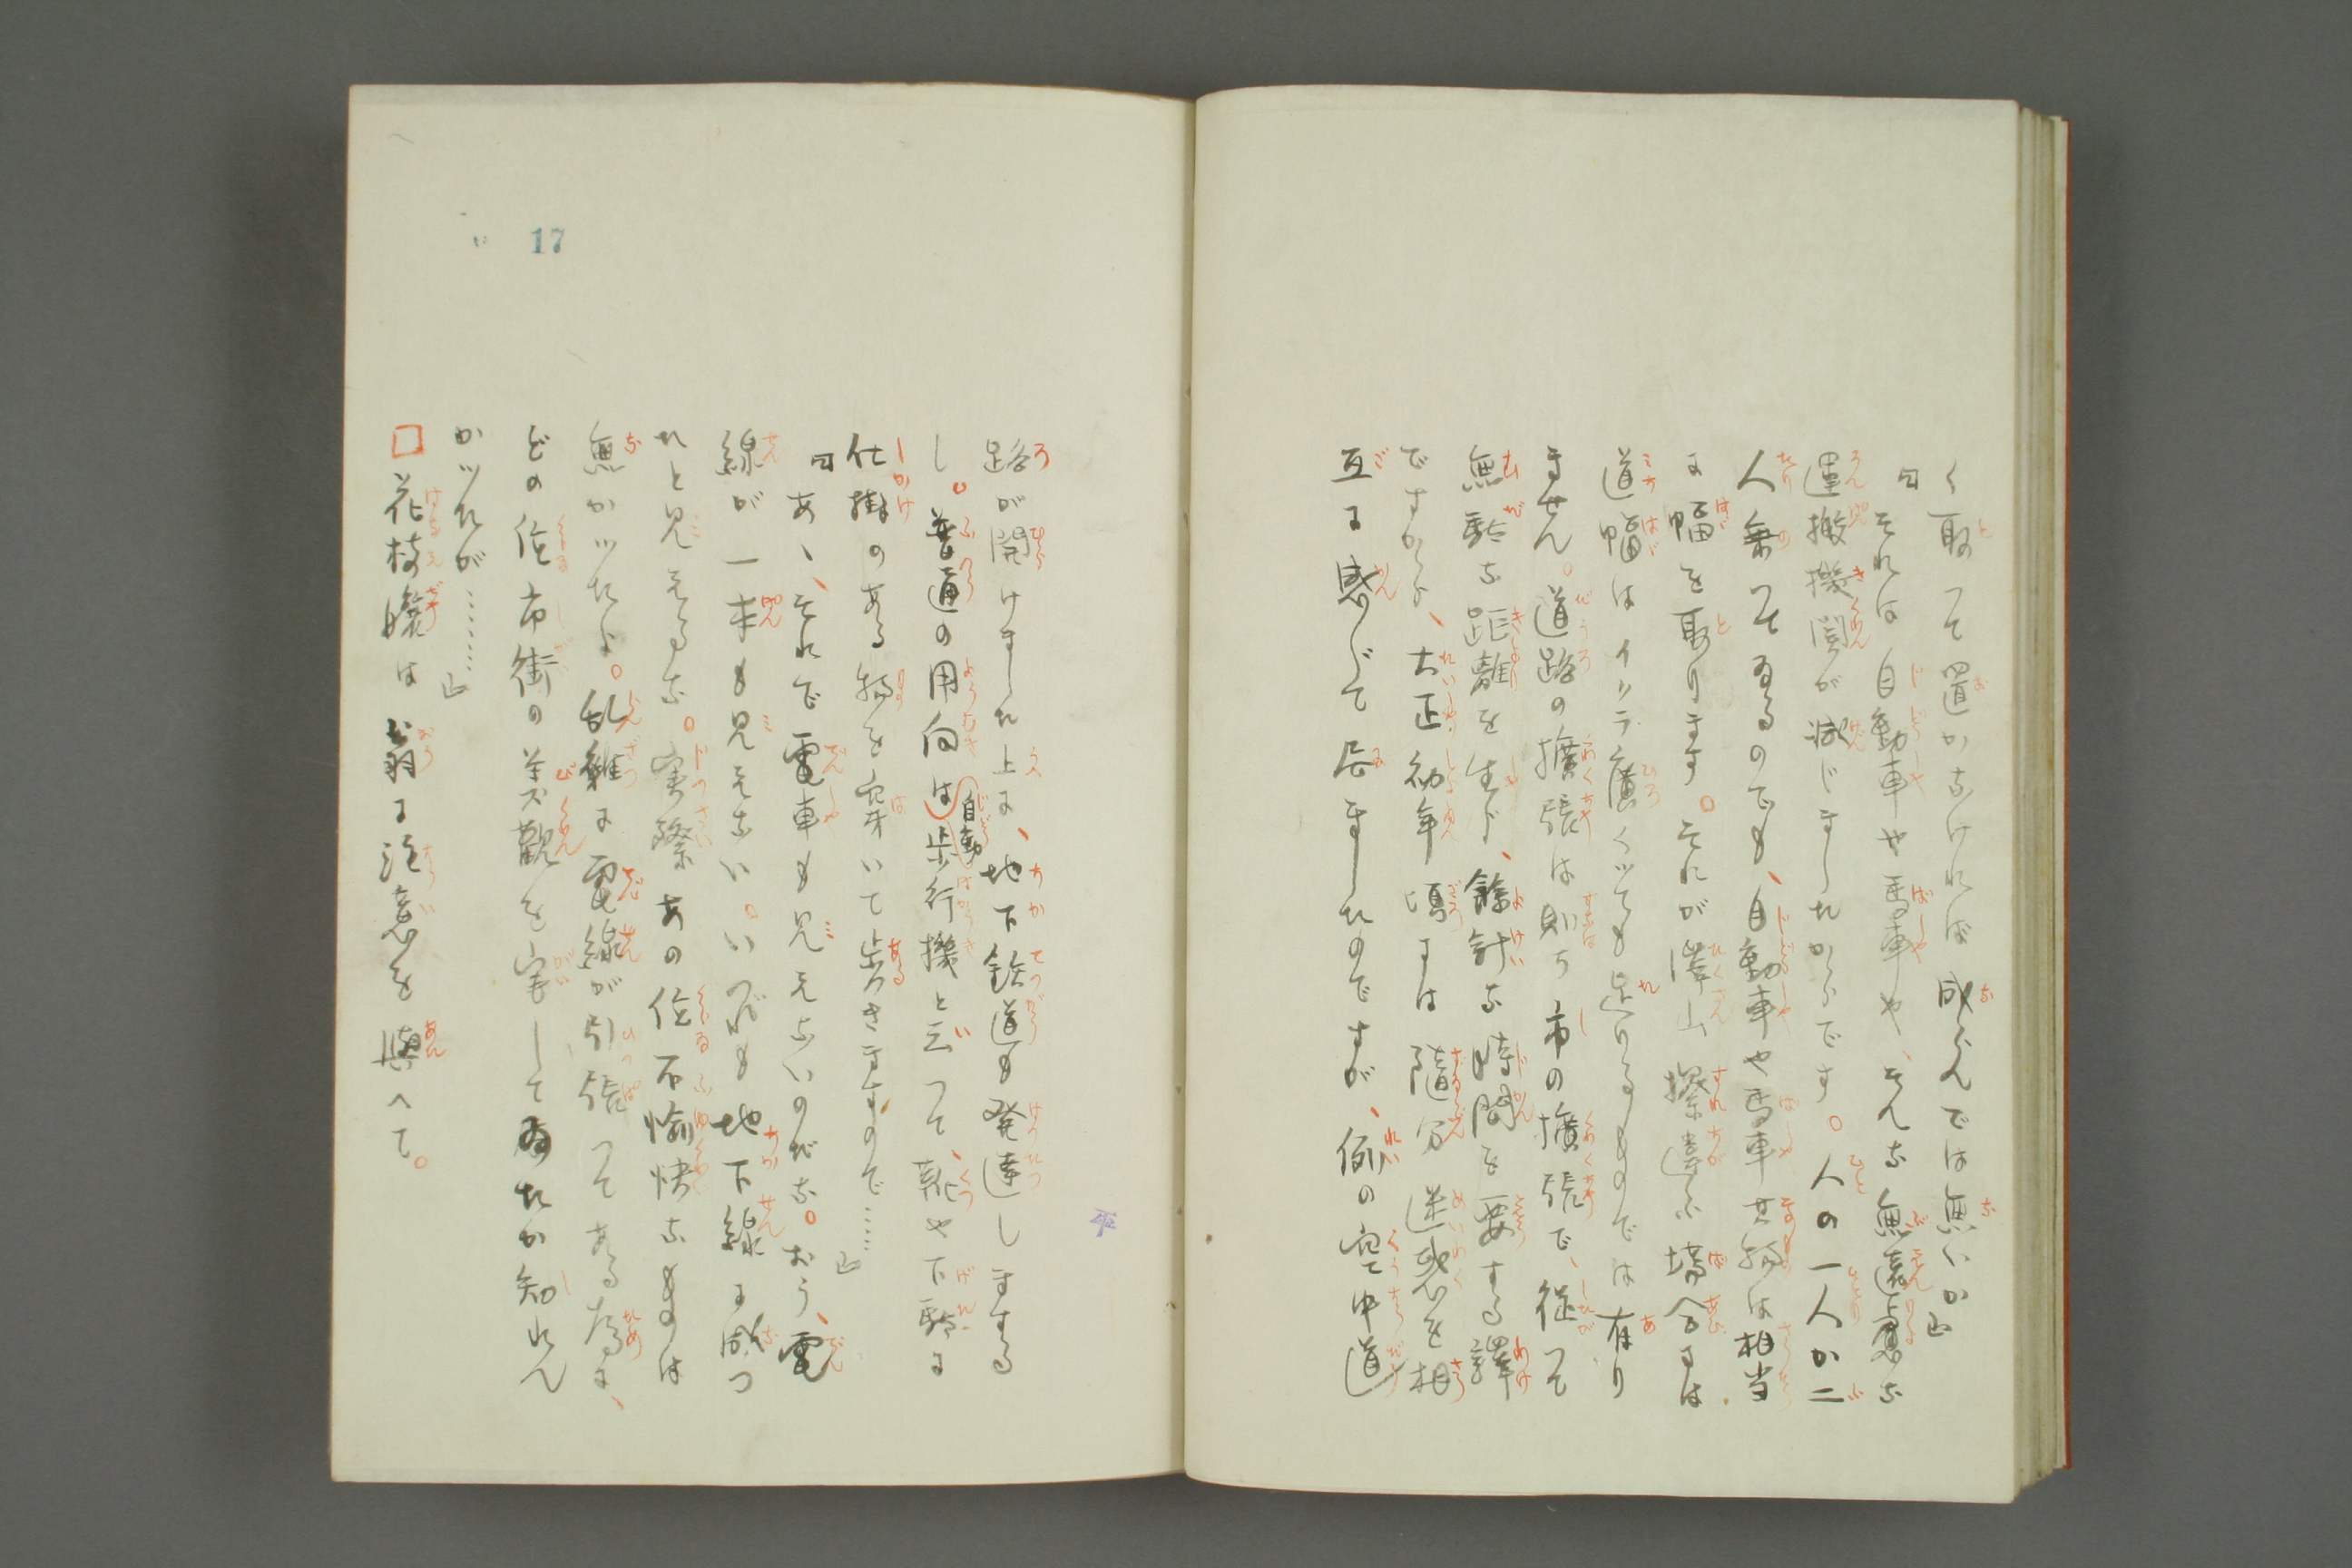 く取つて置かなければ成らんでは無いか」
「それは自動車や馬車や、そんな無遠慮な
運搬機関が減じましたからです。人の一人か二
人乗つてゐるのでも、自動車や馬車其物は相当
に幅を取ります。それが澤山擦違ふ場合には
道幅はイクラ廣くッても足りるものでは有り
ません。道路の擴張は則ち市の擴張で、従つて
無駄な距離を生じ、餘計な時間を要する譯
ですから、大正初年頃には随分迷惑を相
互に感じて居ましたのですが、例の空中道
路が開けました上に、地下鉄道も発達しまする
し。普通の用向は自動歩行機と云つて、靴や下駄に
仕掛のある物を穿いて歩きますので……」
「あゝ、それで電車も見えないのだな。おう、電
線が一本も見えない。いつれも地下線に成つ
たと見えるな。実際あの位不愉快なものは
無かッたよ。乱雑に電線が引張つてある為に、
どの位市街の美觀を害して居たか知れん
かッたが……」
□花枝孃は翁に注意を與へて。
17